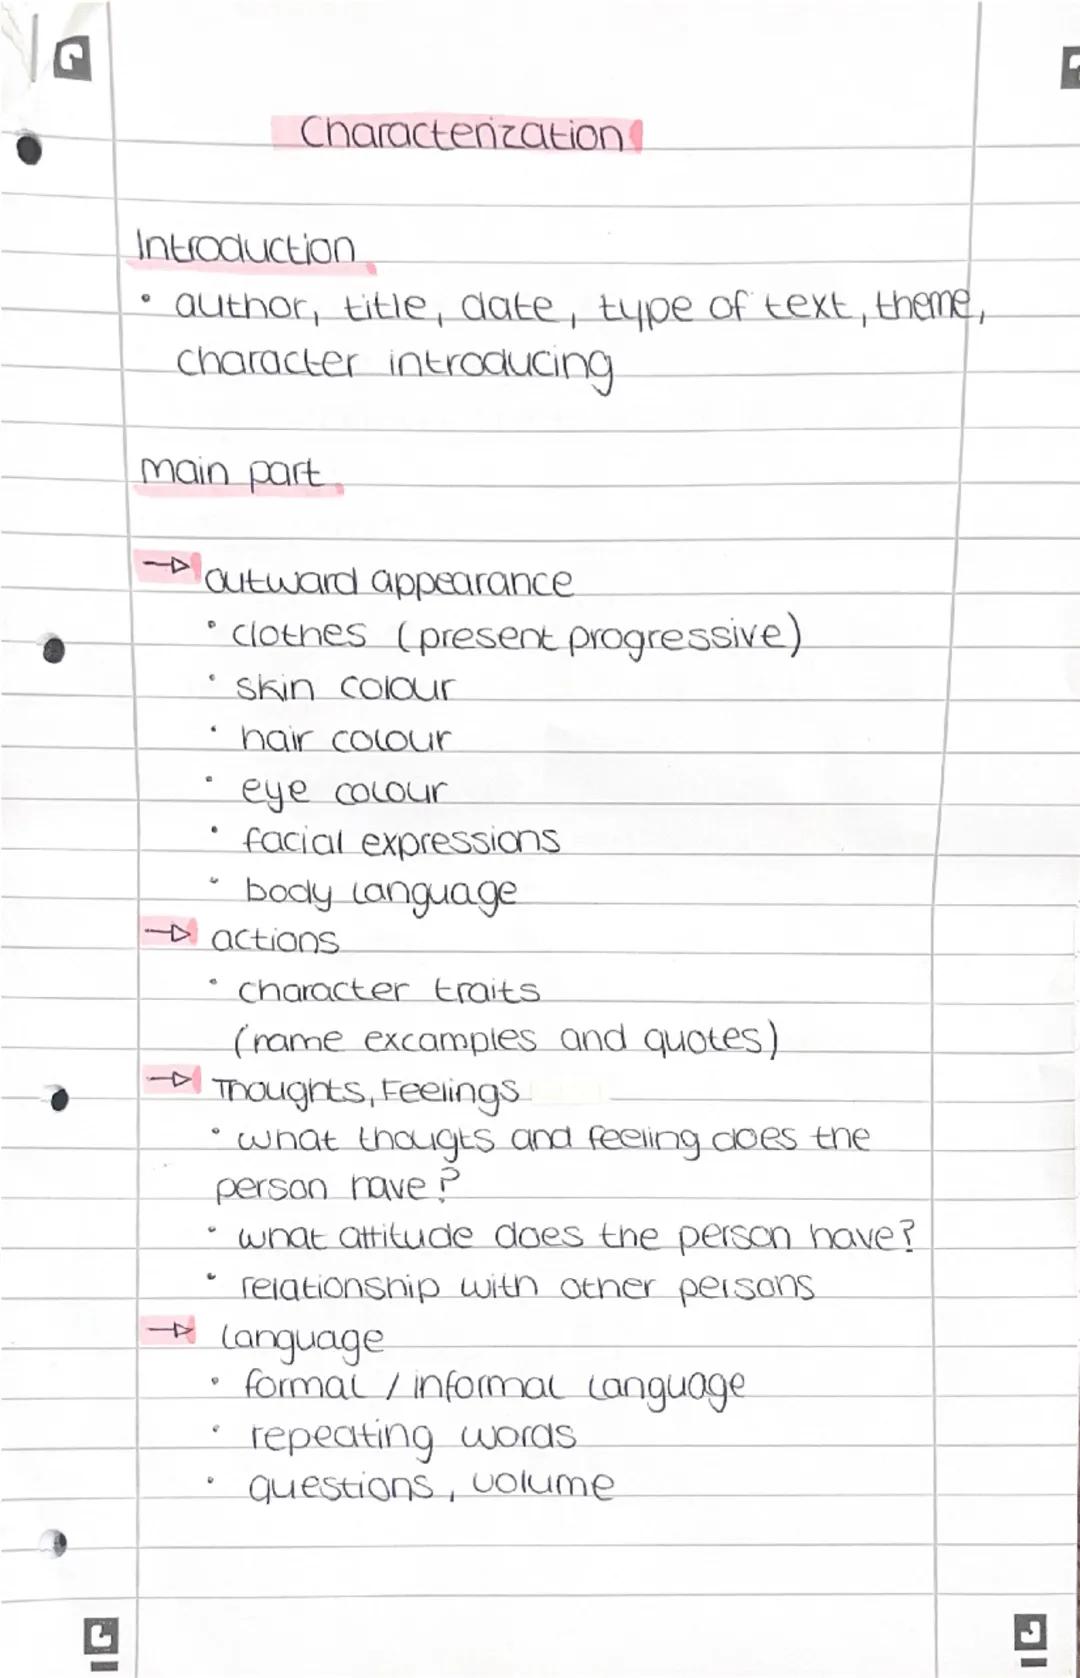 Characterization
Introduction
• author, title, date, type of text, theme,
character introducing
main part
→ outward appearance
• clothes (present progressive)
• skin colour
• hair colour
• eye colour
• facial expressions
• body language
→ actions
• character traits
(name excamples and quotes)
→ Thoughts, Feelings
• what thougts and feeling does the
person have?
• what attitude does the person have?
• relationship with other persons
→ language
• formal / informal language
• repeating words
• questions, volume